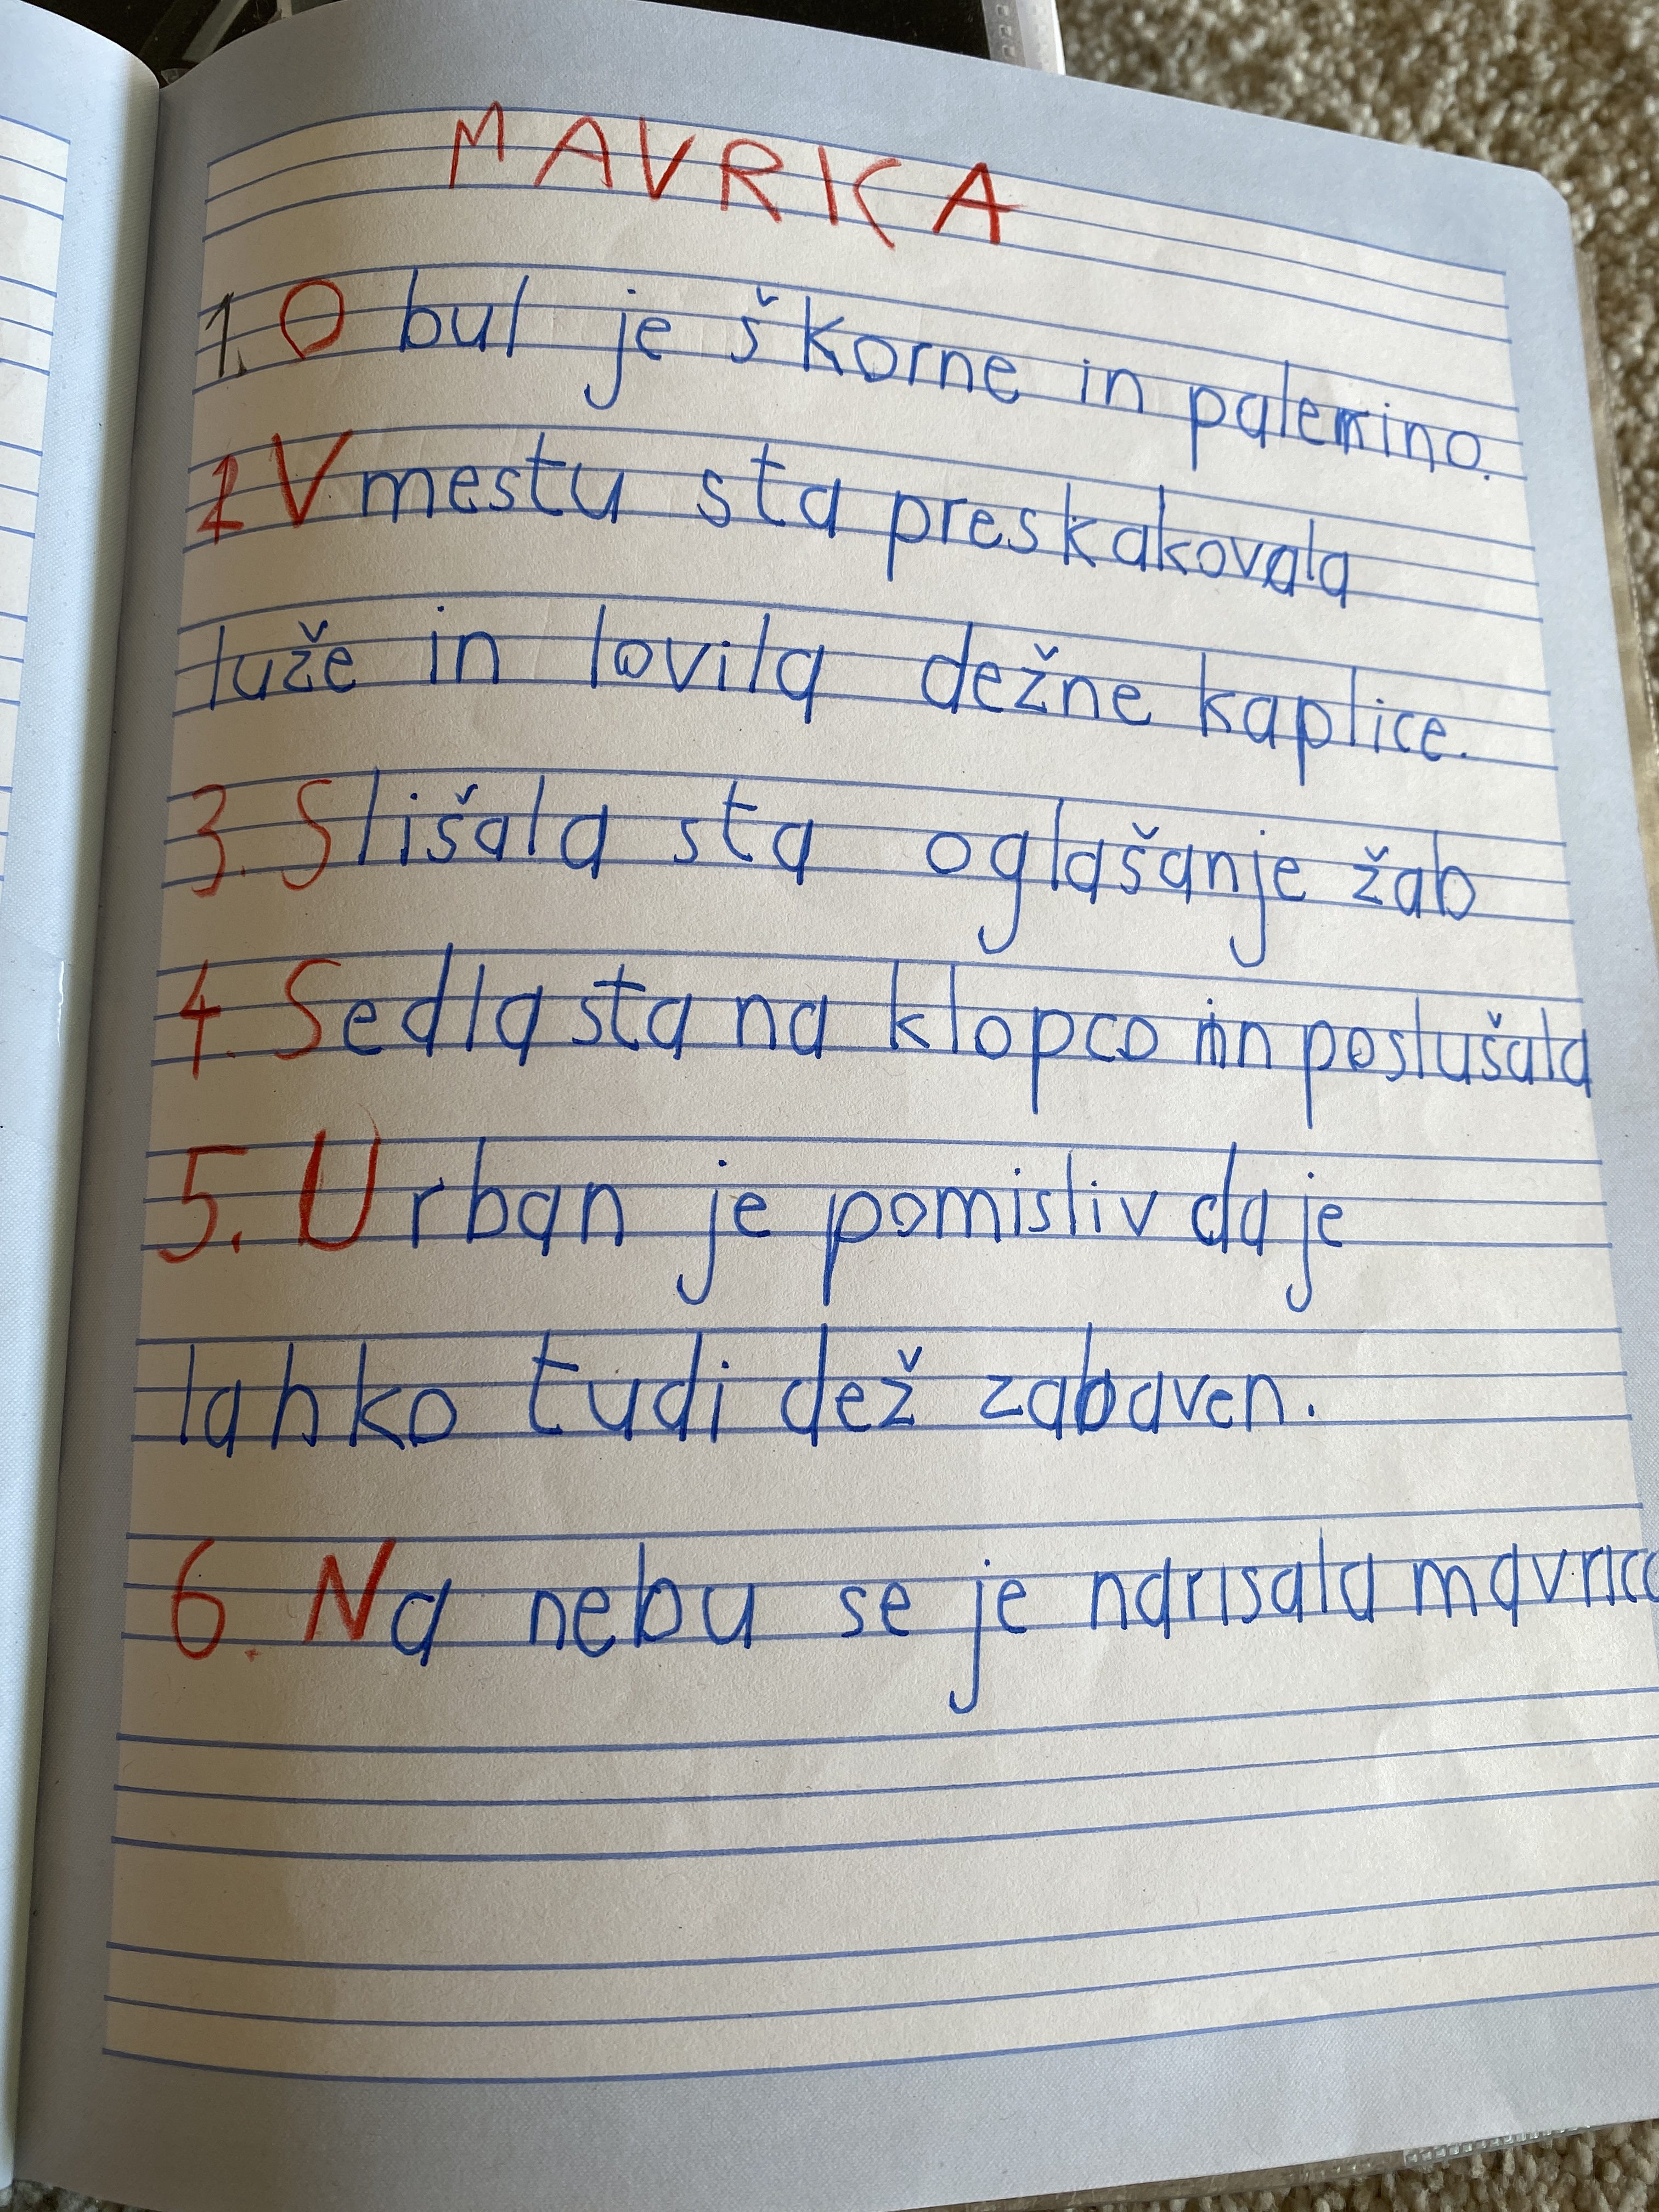 MAVRICA
1. Obul je škorne in palerino.
2 V mestu sta preskakovala
luže in lovila dežne kaplice.
3. Slišala sta oglašanje žab
4. Sedla sta na klopco in poslušala
5. Urban je pomisliv da je
lahko tudi dež zabaven.
6. Na nebu se je narisala mavrica